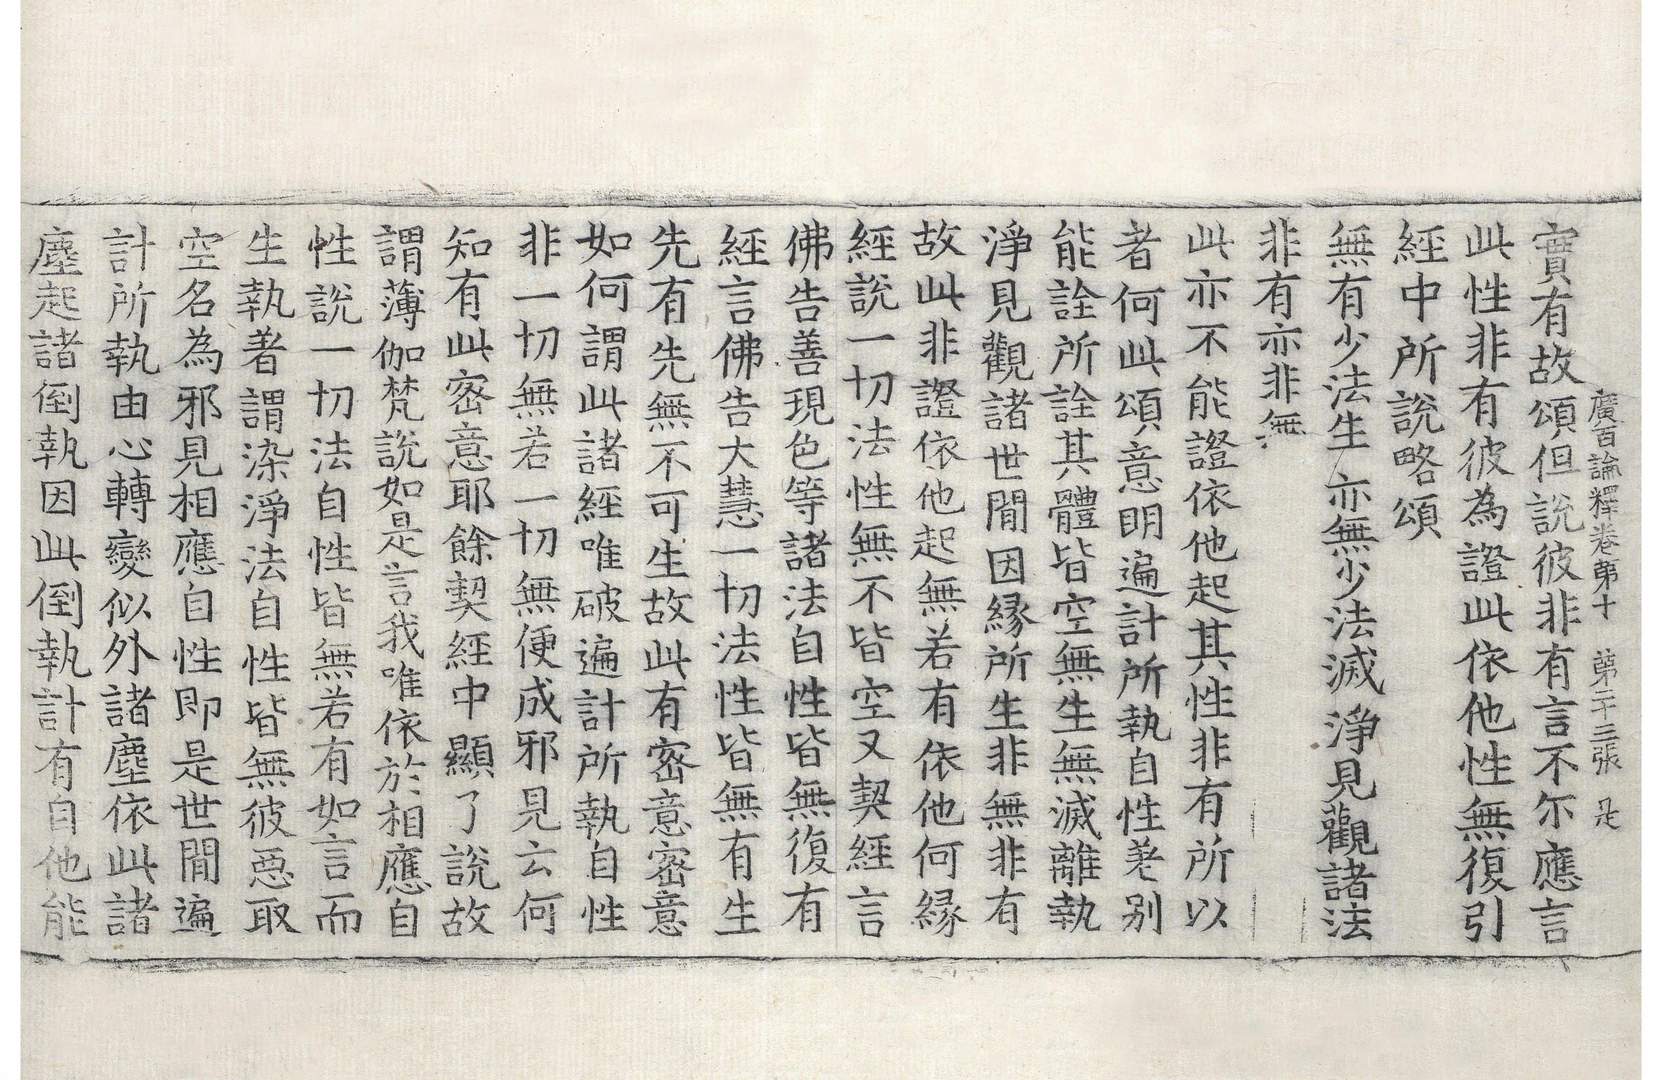 廣百論釋卷第十　第二十三張　是
實有故頌但說彼非有言不尒應言
此性非有彼為證此依他性無復引
經中所說略頌
無有少法生亦無少法滅淨見觀諸法
非有亦非無
此亦不能證依他起其性非有所以
者何此頌意明遍計所執自性差別
能詮所詮其體皆空無生無滅離執
淨見觀諸世間因緣所生非無非有
故此非證依他起無若有依他何緣
經說一切法性無不皆空又契經言
佛告善現色等諸法自性皆無復有
經言佛告大慧一切法性皆無有生
先有先無不可生故此有密意密意
如何謂此諸經唯破遍計所執自性
非一切無若一切無便成邪見云何
知有此密意耶餘契經中顯了說故
謂薄伽梵說如是言我唯依於相應自
性說一切法自性皆無若有如言而
生執著謂染淨法自性皆無彼惡取
空名為邪見相應自性即是世間遍
計所執由心轉變似外諸塵依此諸
塵起諸倒執因此倒執計有自他能